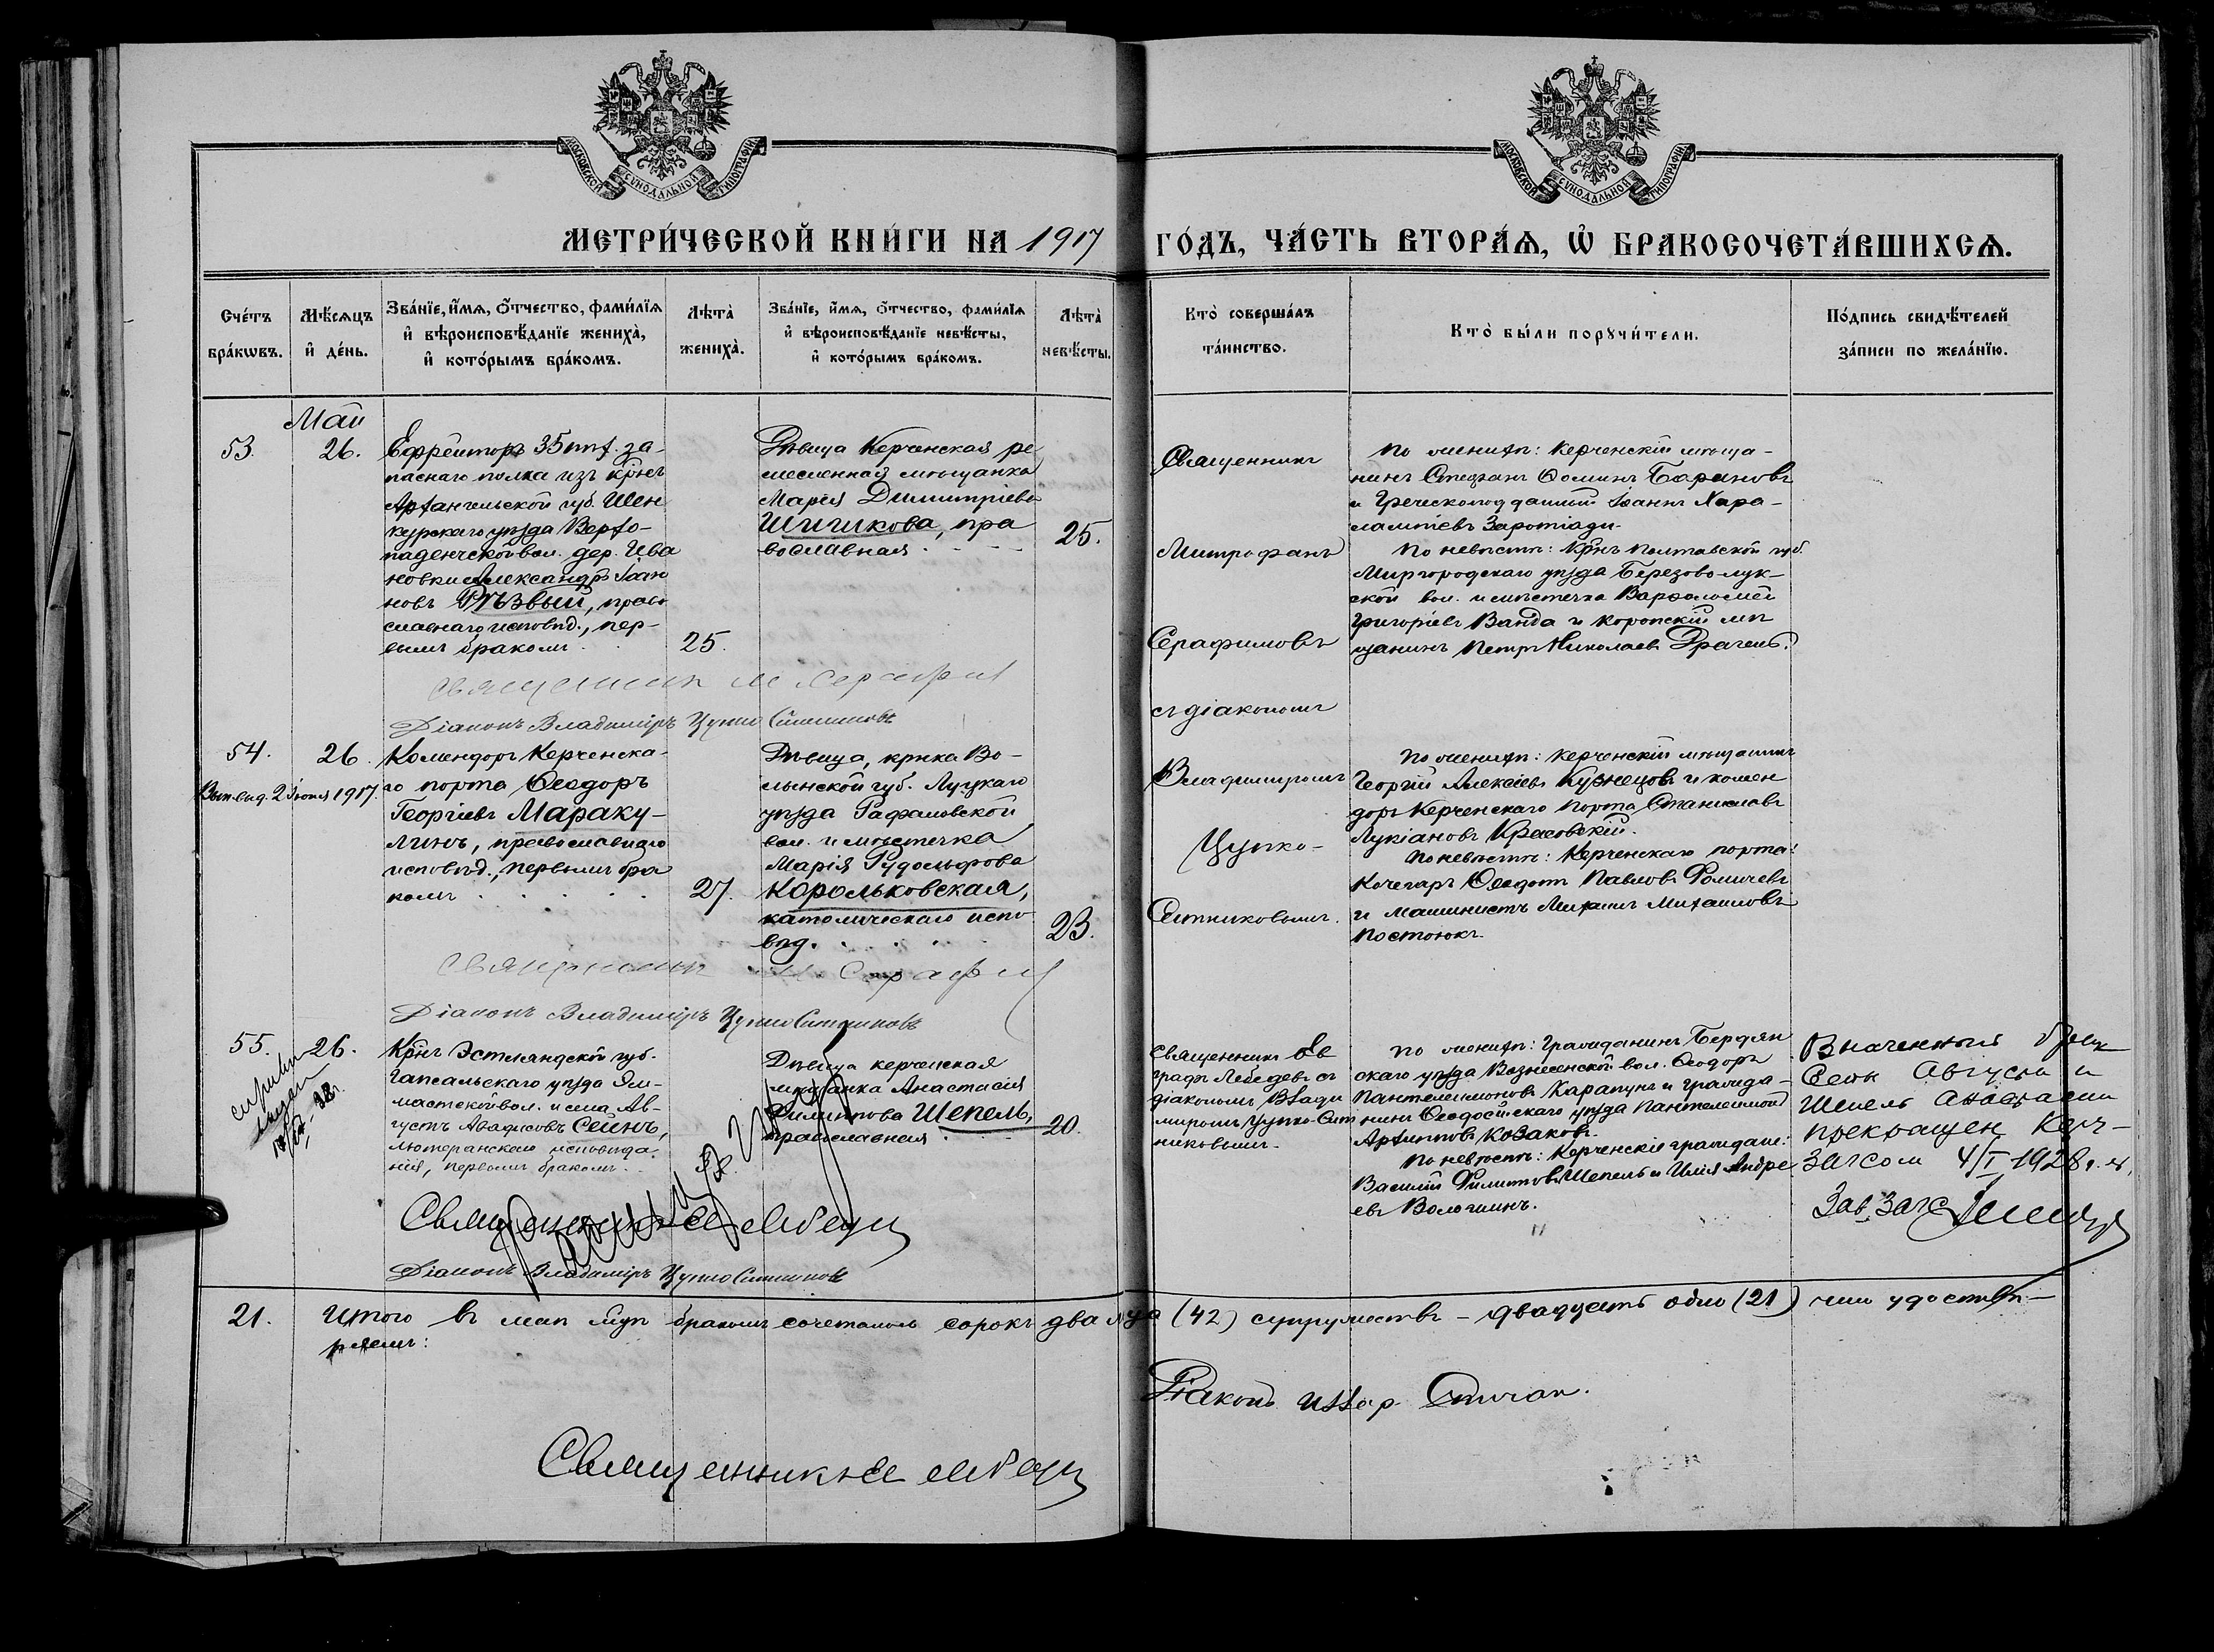 МОСКОВСКОЙ СѴНОДАЛЬНОЙ ТИПОГРАФІИ
МОСКОВСКОЙ СѴНОДАЛЬНОЙ ТИПОГРАФІИ
МЕТРИ́ЧЕСКОЙ КНИ́ГИ НА 1917 ГО́ДЪ, ЧА́СТЬ ВТОРА́Ѧ, Ѡ҆ БРАКОСОЧЕТА́ВШИХСѦ.
Сче́тъ бра́кѡвъ.
Мѣ́сѧцъ и҆ де́нь.
Зва́нїе, и҆́мѧ, ѻ҆́тчество, фами́лїѧ
и҆ вѣроисповѣ́данїе жениха̀,
и҆ кото́рымъ бра́комъ.
Лѣта̀ жениха̀.
Зва́нїе, и҆́мѧ, ѻ҆́тчество, фами́лїѧ
и҆ вѣроисповѣ́данїе невѣ́сты,
и҆ кото́рымъ бра́комъ.
Лѣта̀ невѣ́сты.
Кто̀ соверша́лъ та́инство.
Кто̀ бы́ли порꙋчи́тели.
По́дпись свидѣ́телей за́писи по жела́нїю.
Май
53.
26.
Ефрейторъ 35 пѣх. за-
паснаго полка изъ крнъ
Архангельской губ. Шен
курскаго уѣзда Верхо-
паденгской вол. дер. Ива
новки Александръ Іоан
новъ Рѣзвый, право
славнаго исповѣд., пер-
вымъ бракомъ
25.
Дѣвица Керченская ре
месленная мѣщанка
Марія Димитріева
Шишкова, пра
вославная
25.
Священникъ
Митрофанъ
Серафимовъ
съ діакономъ
Владимиромъ
Цупко-
Ситниковымъ.
По женихѣ: Керченскій мѣща-
нинъ Стефанъ Ѳоминъ Барановъ
и Греческоподданный Іоаннъ Хара-
лампіевъ
По невѣстѣ: Крнъ Полтавской губ.
Миргородскаго уѣзда Березово-лук-
ской вол. и мѣстечка Варѳоломей
Григоріевъ Ванда и Коропскій мѣ
щанинъ Петръ Николаевъ
Священникъ М Сераф
Діаконъ Владиміръ Цупко Ситниковъ
54.
26.
Вып. выд. 2 іюня 1917.
Комендоръ Керченска-
го порта Ѳеодоръ
Георгіевъ Мараку-
линъ, православнаго
исповѣд., первымъ бра
комъ
27.
Дѣвица, крнка Во-
лынской губ. Луцкаго
уѣзда Рафаловской
вол. и мѣстечка
Марія Рудольфова
Корольковская,
католическаго испо
вѣд.
23.
По женихѣ: Керченскій мѣщанинъ
Георгій Алексіевъ Кузнецовъ и комен
доръ Керченскаго порта Станиславъ
Лукіановъ Красовскій.
По невѣстѣ: Керченскаго порта:
Кочегаръ Ѳеодотъ Павловъ Фомичевъ
и машинистъ Михаилъ Михаиловъ
Постоюкъ.
Священникъ М Сераф
Діаконъ Владиміръ Цупко Ситниковъ
55.
26.
справка
выдан
38.
Крнъ Эстляндской губ.
Гапсальскаго уѣзда
вол. и села Ав-
густъ Сеинъ,
лютеранскаго исповѣда-
нія, первымъ бракомъ.
Дѣвица керченская
мѣщанка Анастасія
Филиппова Шепель,
православная
20.
Священникъ Ев
графъ Лебедевъ съ
діакономъ Влади
миромъ Цупко-Сит
никовымъ.
По женихѣ: гражданинъ Бердян
скаго уѣзда Вознесенской вол. Ѳеодоръ
Пантелеимоновъ Карапунъ и гражда-
нинъ Ѳеодосійскаго уѣзда Пантелеимонъ
Архиповъ Козаковъ.
По невѣстѣ: Керченскіе граждане:
Василій Филипповъ Шепель и Илія Андре
евъ Вологинъ.
Означенный брак
Сеин Августа и
Шепель Анастасии
прекращен Керч-
загсом 4/I 1928 г.
Зав. Загс
Священникъ Е Лебедев
Діаконъ Владиміръ Цупко Ситниковъ
21.
Итого въ маѣ муж бракомъ сочеталось сорокъ два лица (42) супружествъ - двадцать одно (21) чѣмъ удостовѣ-
ряемъ:
Діаконъ
Священникъ Е Лебедев